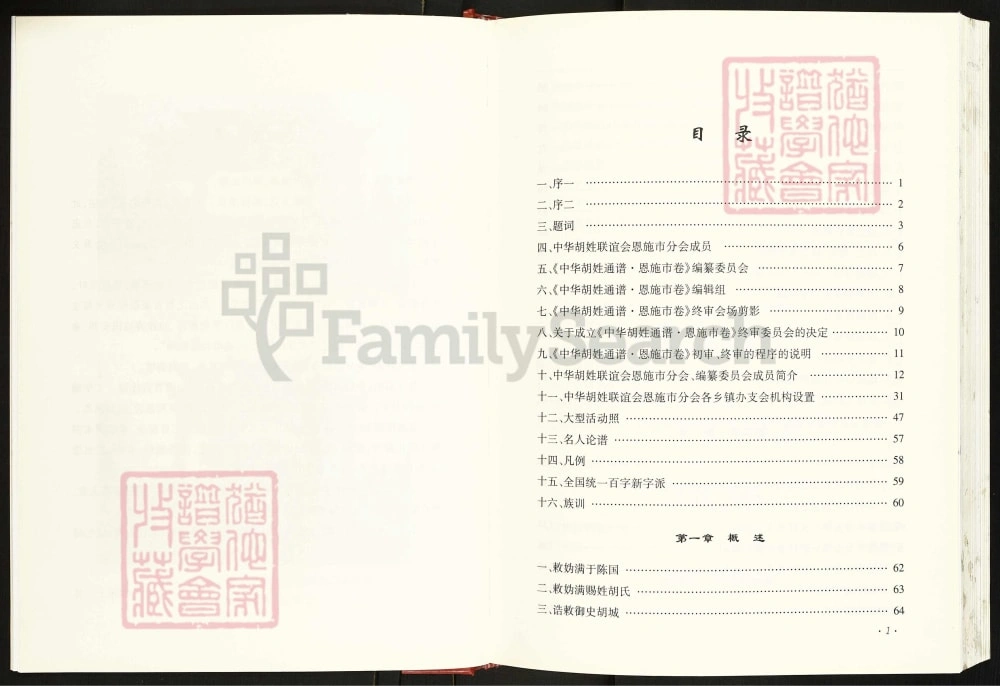 目 录
一、序一 …… 1
二、序二 …… 2
三、题词 …… 3
四、中华胡姓联谊会恩施市分会成员 …… 6
五、《中华胡姓通谱·恩施市卷》编纂委员会 …… 7
六、《中华胡姓通谱·恩施市卷》编辑组 …… 8
七、《中华胡姓通谱·恩施市卷》终审会场剪影 …… 9
八、关于成立《中华胡姓通谱·恩施市卷》终审委员会的决定 …… 10
九、《中华胡姓通谱·恩施市卷》初审、终审的程序的说明 …… 11
十、中华胡姓联谊会恩施市分会、编纂委员会成员简介 …… 12
十一、中华胡姓联谊会恩施市分会各乡镇办支会机构设置 …… 31
十二、大型活动照 …… 47
十三、名人论谱 …… 57
十四、凡例 …… 58
十五、全国统一百字新字派 …… 59
十六、族训 …… 60
第一章 概 述
一、敕妫满于陈国 …… 62
二、敕妫满赐姓胡氏 …… 63
三、浩敕御史胡城 …… 64
·1·
FamilySearch